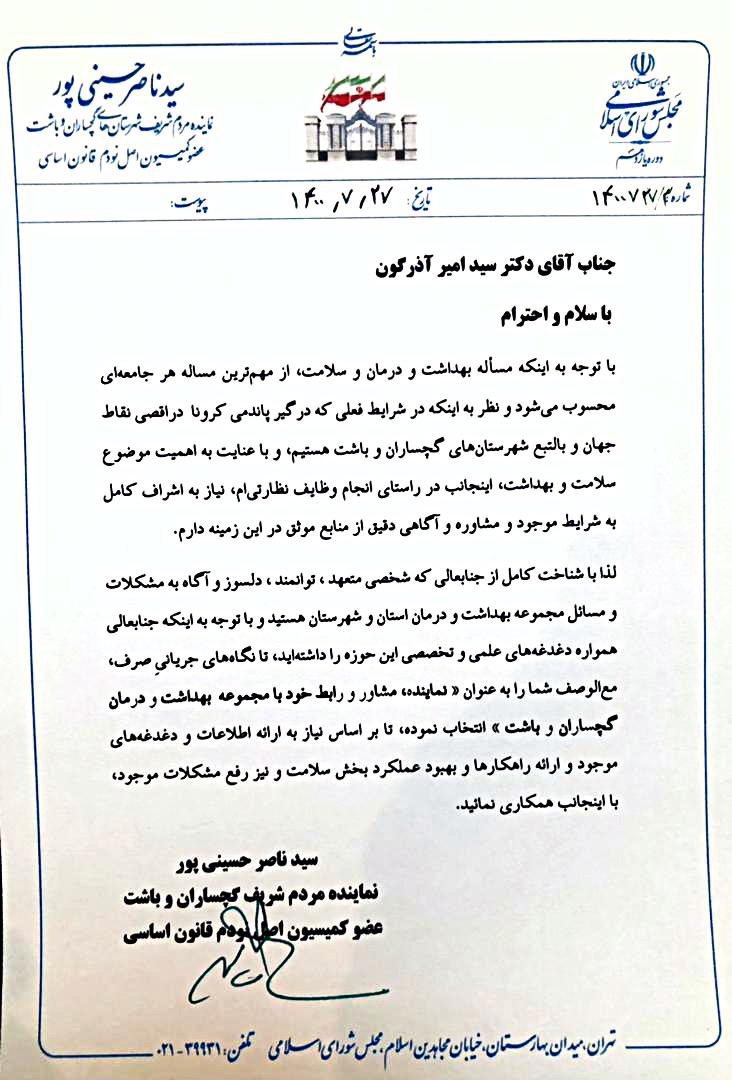 باسمه تعالی
جمهوری اسلامی ایران
مجلس شورای اسلامی
دوره یازدهم
سید ناصر حسینی پور
نماینده مردم شریف شهرستان های گچساران و باشت
عضو کمیسیون اصل نودم قانون اساسی
شماره:
تاریخ: ۱۴۰۰٫۷٫۲۷
پیوست:
جناب آقای دکتر سید امیر آذرگون
با سلام و احترام
با توجه به اینکه مسأله بهداشت و درمان و سلامت، از مهم‌ترین مساله هر جامعه‌ای
محسوب می‌شود و نظر به اینکه در شرایط فعلی که درگیر پاندمی کرونا دراقصی نقاط
جهان و بالتبع شهرستان‌های گچساران و باشت هستیم، و با عنایت به اهمیت موضوع
سلامت و بهداشت، اینجانب در راستای انجام وظایف نظارتی‌ام، نیاز به اشراف کامل
به شرایط موجود و مشاوره و آگاهی دقیق از منابع موثق در این زمینه دارم.
لذا با شناخت کامل از جنابعالی که شخصی متعهد ، توانمند ، دلسوز و آگاه به مشکلات
و مسائل مجموعه بهداشت و درمان استان و شهرستان هستید و با توجه به اینکه جنابعالی
همواره دغدغه‌های علمی و تخصصی این حوزه را داشته‌اید، تا نگاه‌های جریانیِ صرف،
مع‌الوصف شما را به عنوان « نماینده، مشاور و رابط خود با مجموعه بهداشت و درمان
گچساران و باشت » انتخاب نموده، تا بر اساس نیاز به ارائه اطلاعات و دغدغه‌های
موجود و ارائه راهکارها و بهبود عملکرد بخش سلامت و نیز رفع مشکلات موجود،
با اینجانب همکاری نمائید.
سید ناصر حسینی پور
نماینده مردم شریف گچساران و باشت
عضو کمیسیون اصل نودم قانون اساسی
تهران، میدان بهارستان، خیابان مجاهدین اسلام، مجلس شورای اسلامی تلفن: ۳۹۹۳۱-۰۲۱